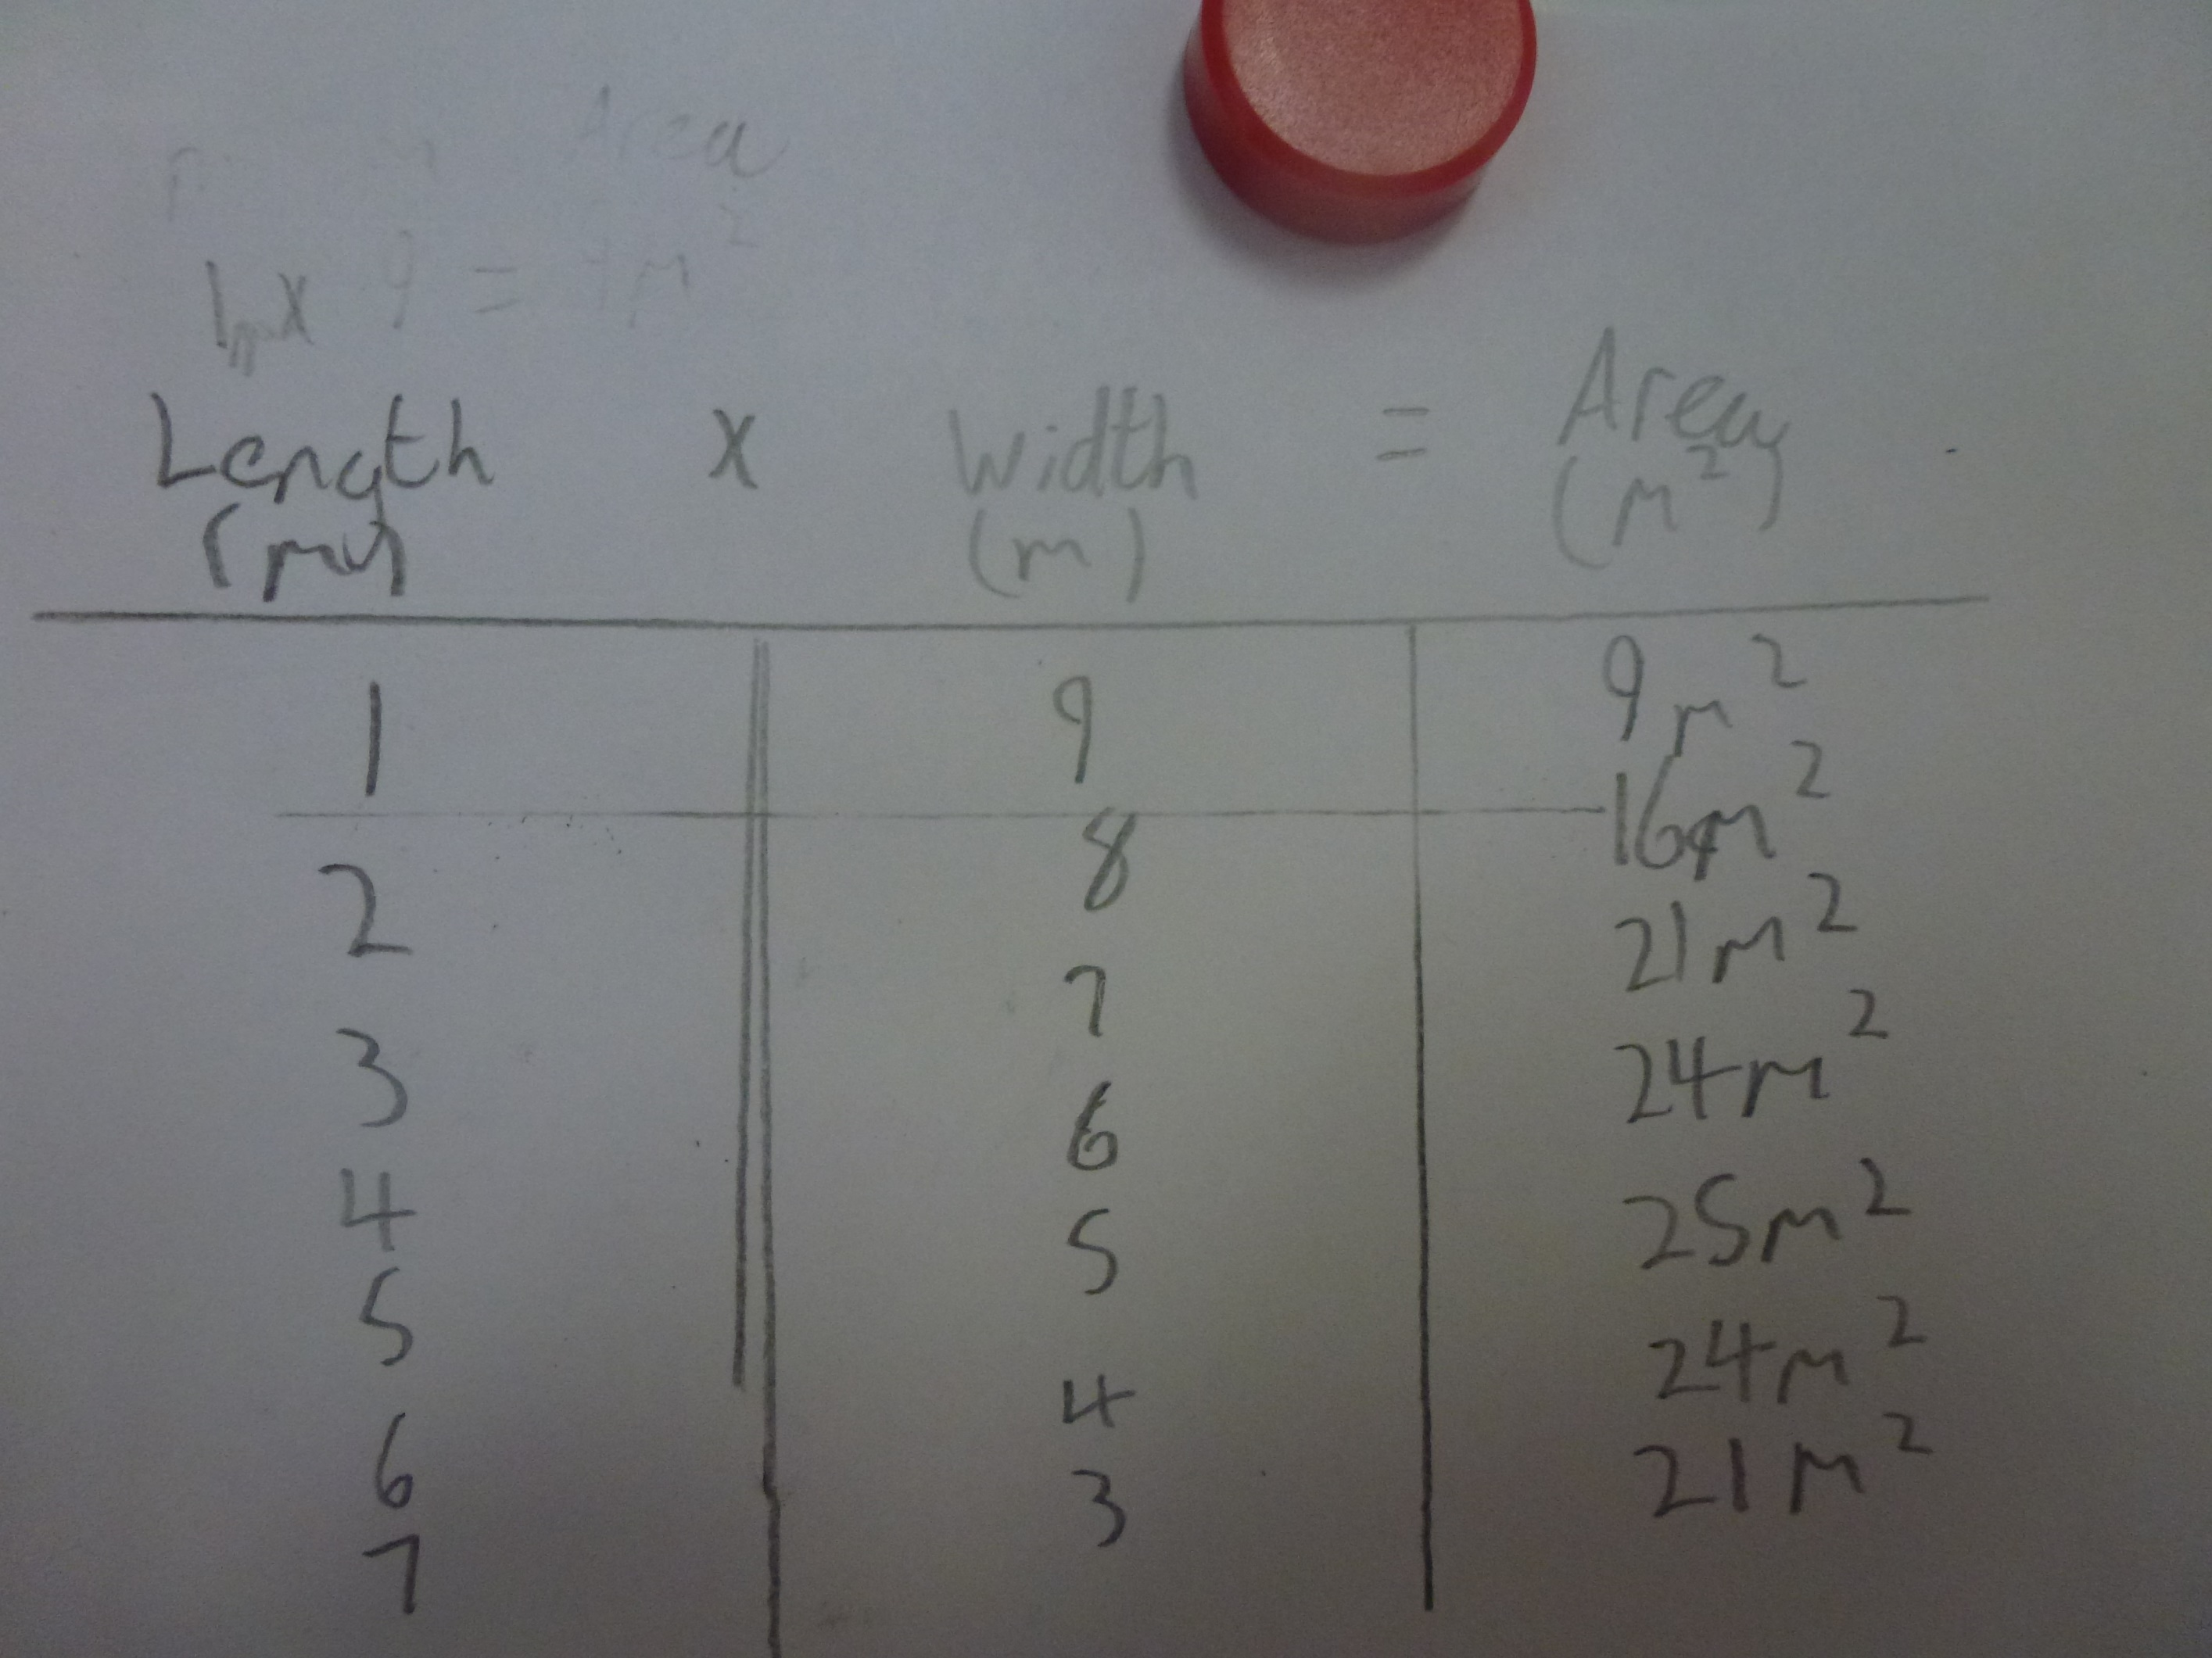 Area
1m x 9 = 9m²
Length x Width = Area
(m) (m) (m²)
1 9 9m²
2 8 16m²
3 7 21m²
4 6 24m²
5 5 25m²
6 4 24m²
7 3 21m²